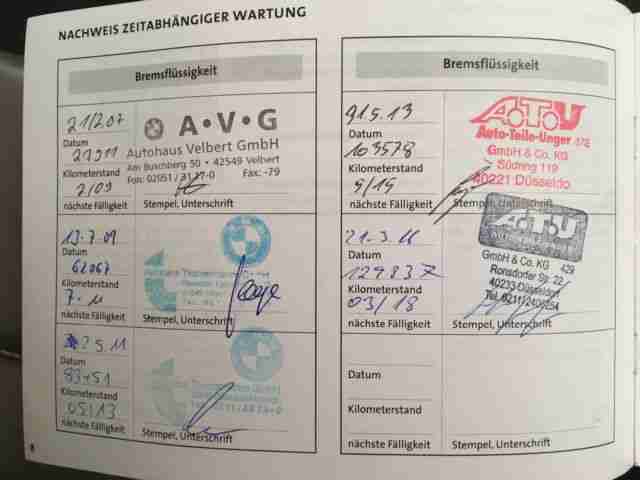 NACHWEIS ZEITABHÄNGIGER WARTUNG
Bremsflüssigkeit
21/2.07
Datum
21911
Kilometerstand
2/09
nächste Fälligkeit
A•V•G
Autohaus Velbert GmbH
Am Buschberg 50 • 42549 Velbert
Fax: -79
Stempel, Unterschrift
13.7.09
62067
Kilometerstand
7.11
nächste Fälligkeit
Stempel, Unterschrift
5.11
Datum
83451
Kilometerstand
05/13
nächste Fälligkeit
Stempel, Unterschrift
Bremsflüssigkeit
Datum
103578
Kilometerstand
nächste Fälligkeit
A.T.U
Auto-Teile-Unger
GmbH & Co. KG
Südring 119
40221 Düsseldo
Stempel, Unterschrift
Datum
129837
Kilometerstand
03/18
nächste Fälligkeit
A.T.U
GmbH & Co. KG 429
Ronsdorfer Str. 22
40233 Düsseldorf
Stempel, Unterschrift
Datum
Kilometerstand
nächste Fälligkeit
Stempel, Unterschrift
8